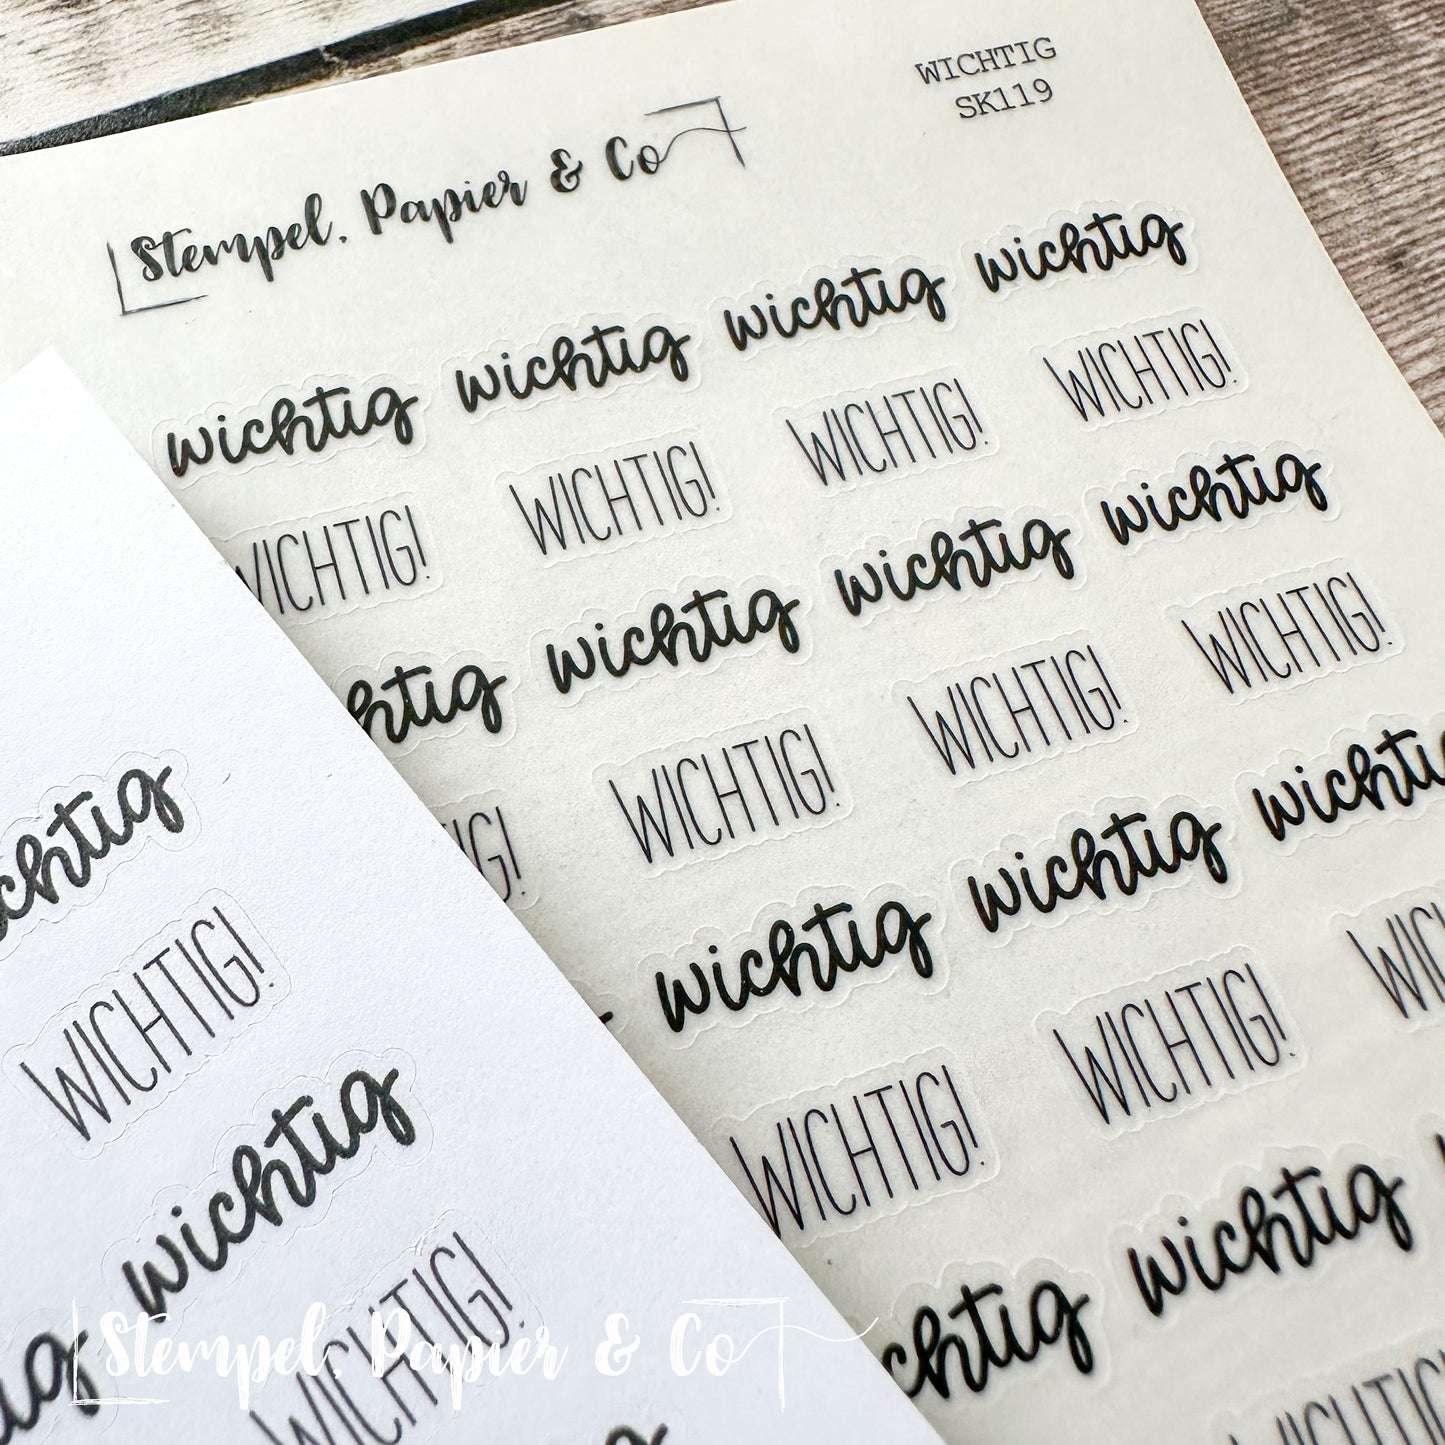 WICHTIG
SK119
Stempel, Papier & Co
wichtig wichtig wichtig wichtig
WICHTIG! WICHTIG! WICHTIG! WICHTIG!
wichtig wichtig wichtig
WICHTIG! WICHTIG! WICHTIG!
wichtig wichtig
WICHTIG! WICHTIG!
wichtig
wichtig
WICHTIG!
wichtig
WICHTIG!
Stempel, Papier & Co